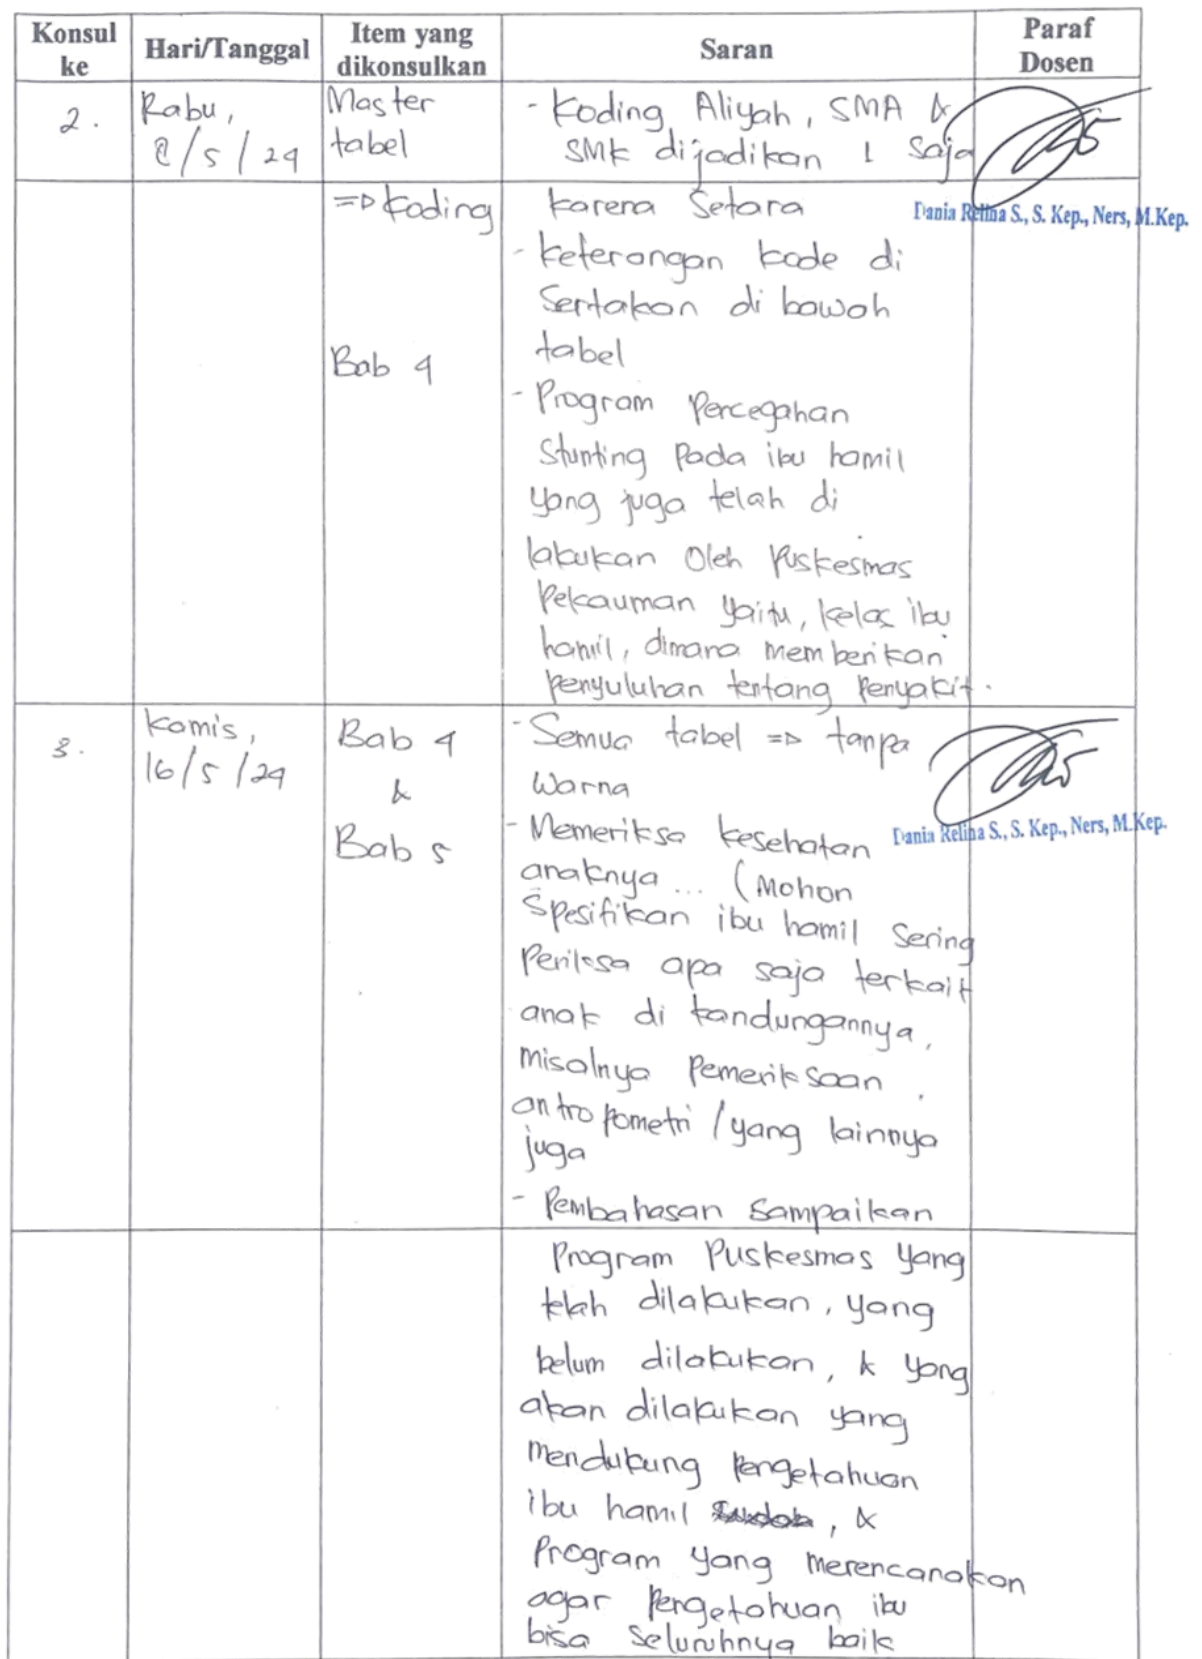 Konsul ke Hari/Tanggal Item yang dikonsulkan Saran Paraf Dosen
2. Rabu, 8/5/24 Master tabel - Koding Aliyah, SMA & SMK dijadikan 1 saja
=> Koding karena Setara
Dania Relina S., S. Kep., Ners, M.Kep.
- keterangan kode di
Sertakan di bawah
tabel
Bab 4
- Program Percegahan
Stunting Pada ibu hamil
yang juga telah di
lakukan Oleh Puskesmas
Pekauman yaitu, kelas ibu
hamil, dimana memberikan
penyuluhan tentang Penyakit.
3. Kamis, 16/5/24 Bab 4 & Bab 5 - Semua tabel => tanpa
Warna
- Memeriksa kesehatan
Dania Relina S., S. Kep., Ners, M.Kep.
anaknya ... (Mohon
Spesifikan ibu hamil Sering
Periksa apa saja terkait
anak di kandungannya,
misalnya Pemeriksaan
antropometri / yang lainnya
juga
- Pembahasan Sampaikan
Program Puskesmas yang
telah dilakukan, yang
belum dilakukan, & yang
akan dilakukan yang
mendukung Pengetahuan
ibu hamil , &
Program yang merencanakan
agar Pengetahuan ibu
bisa Seluruhnya baik